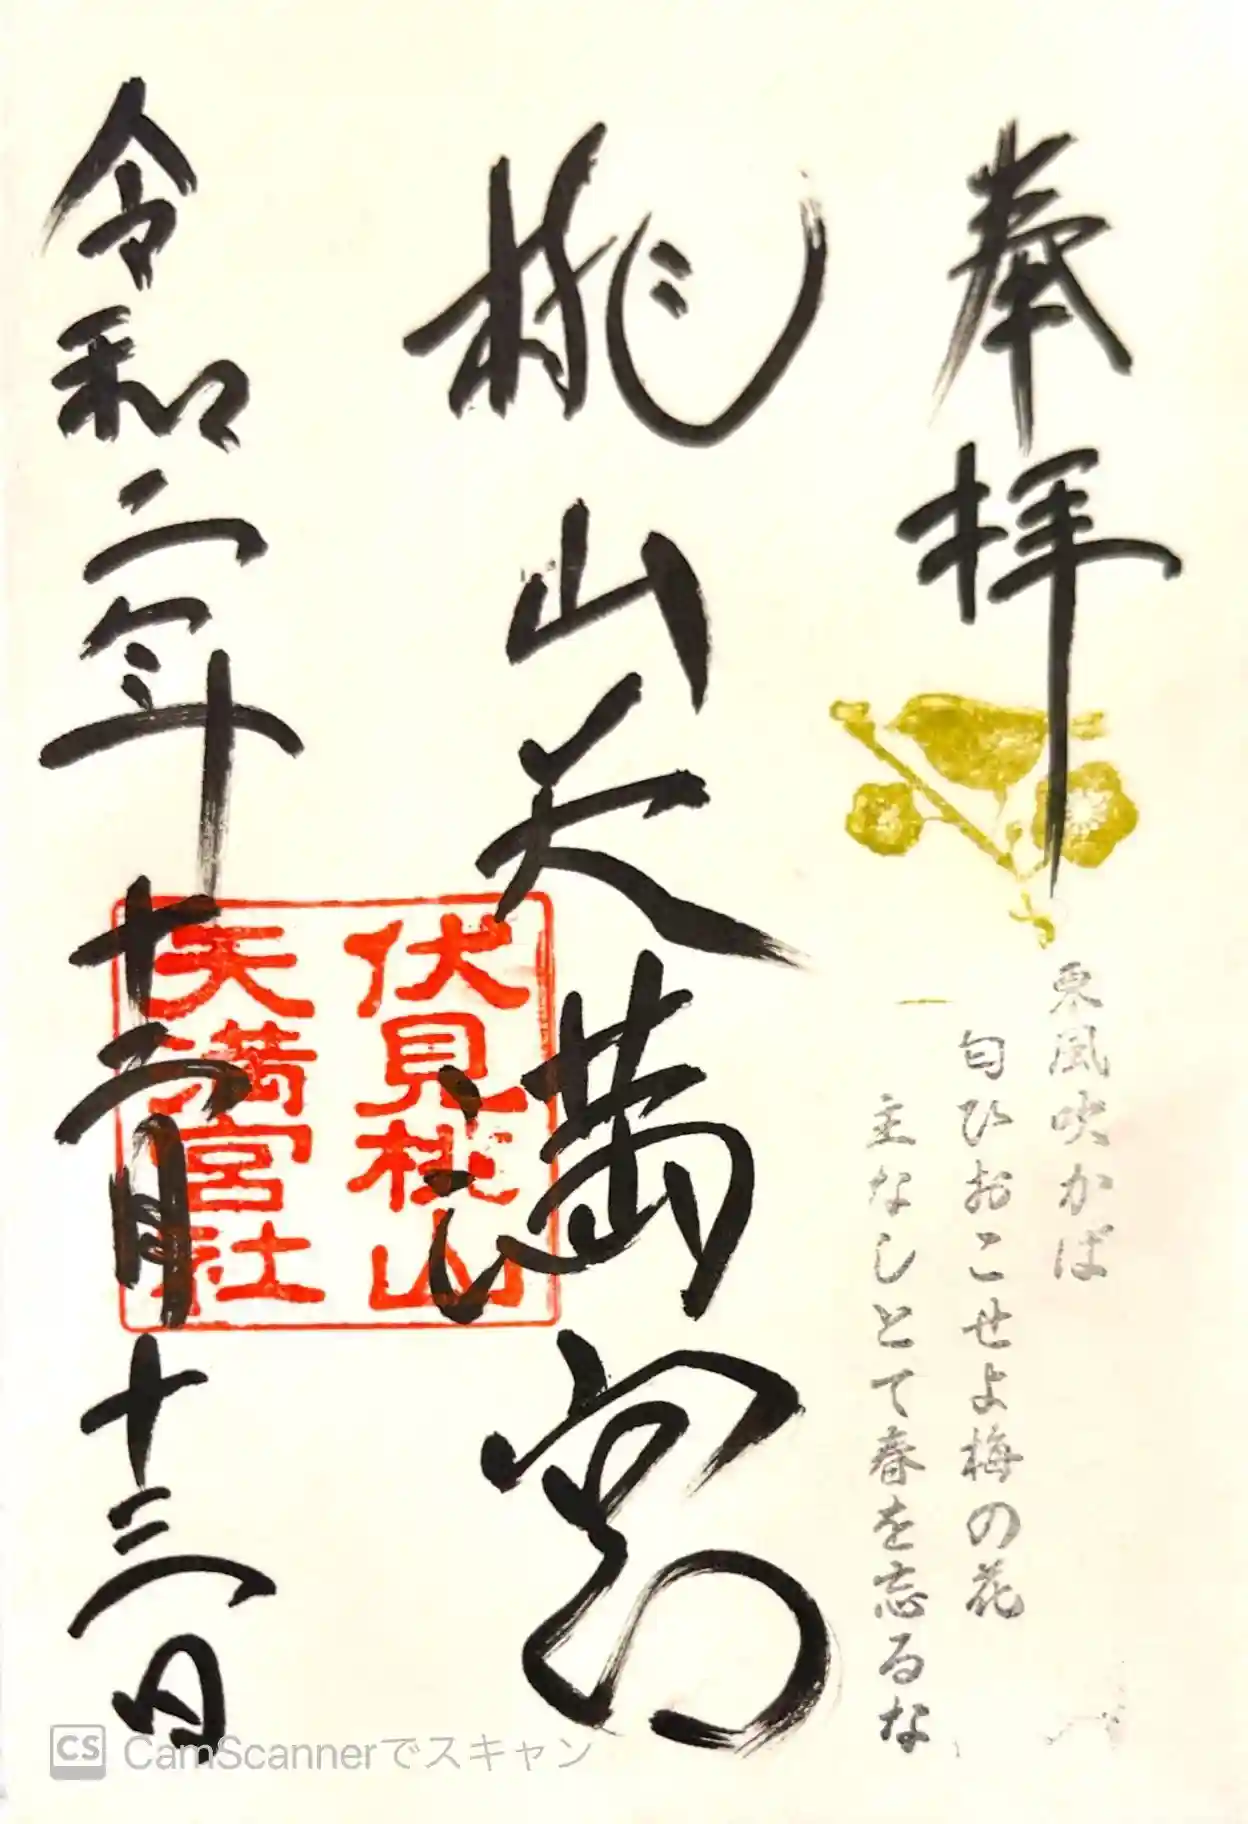 奉拝
東風吹かば
匂ひおこせよ梅の花
主なしとて春を忘るな
桃山天満宮
伏見桃山
天満宮社
令和二年十二月十三日
CS CamScannerでスキャン